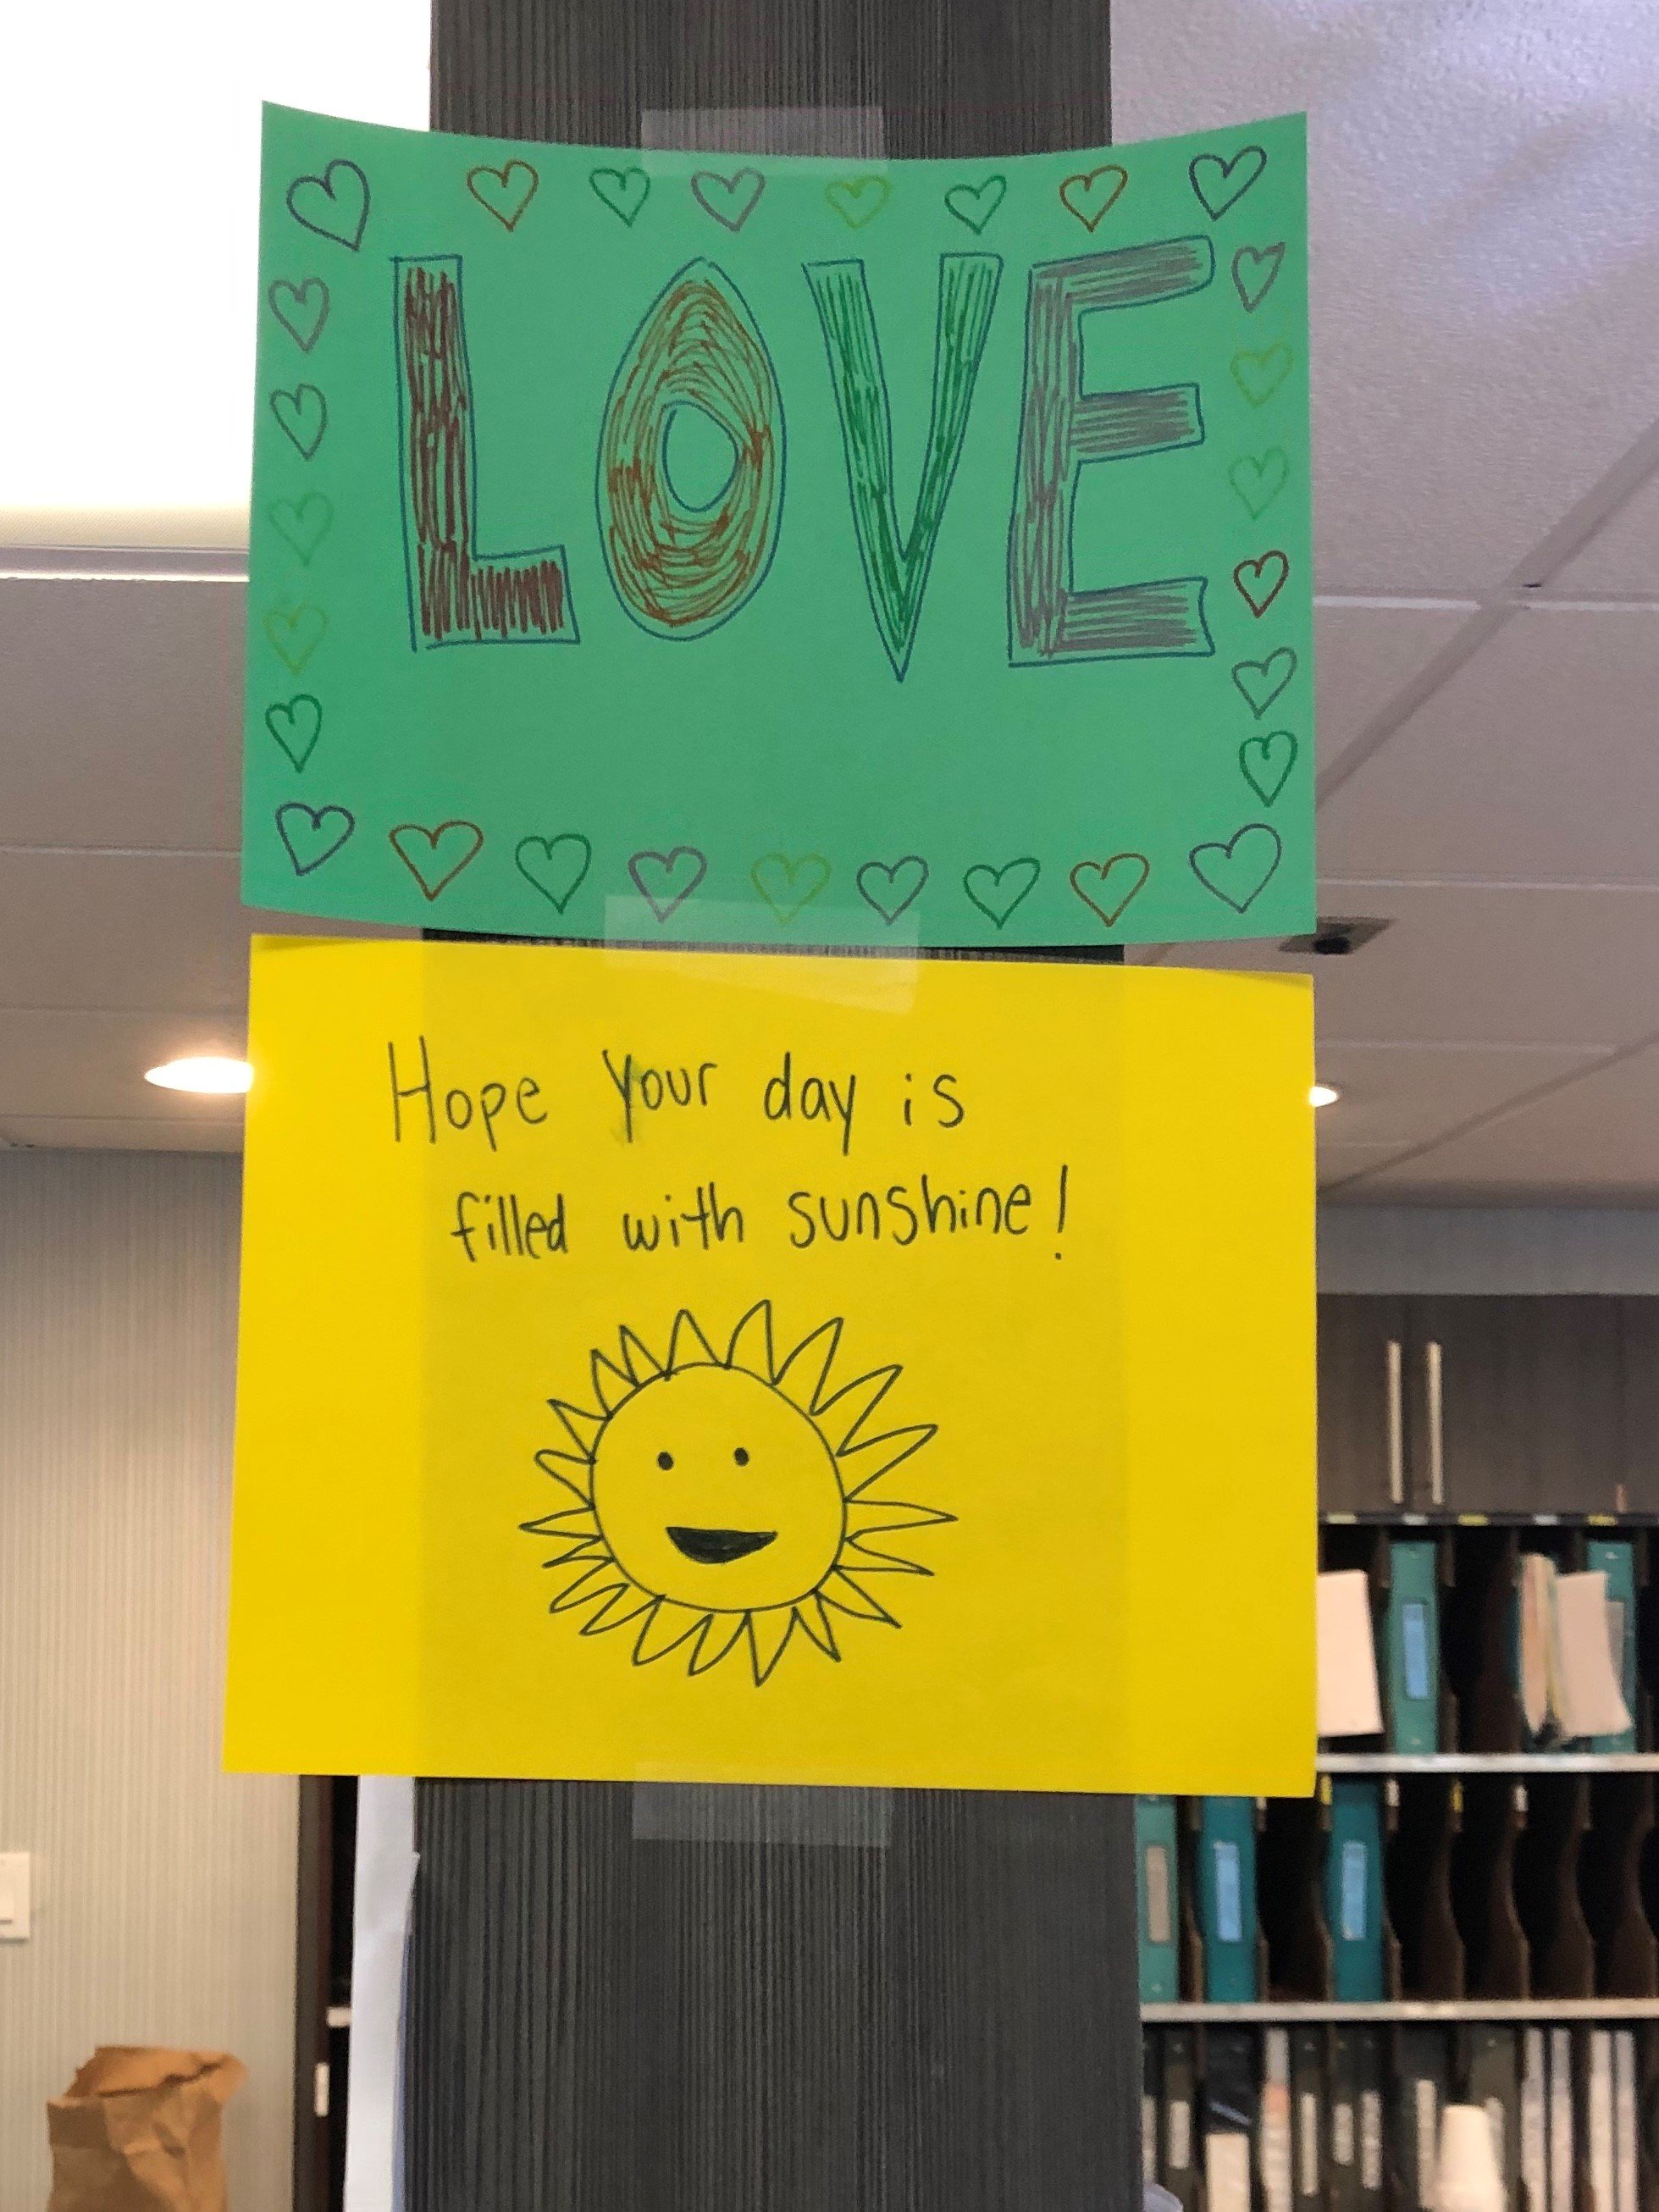 LOVE
Hope your day is
filled with sunshine!